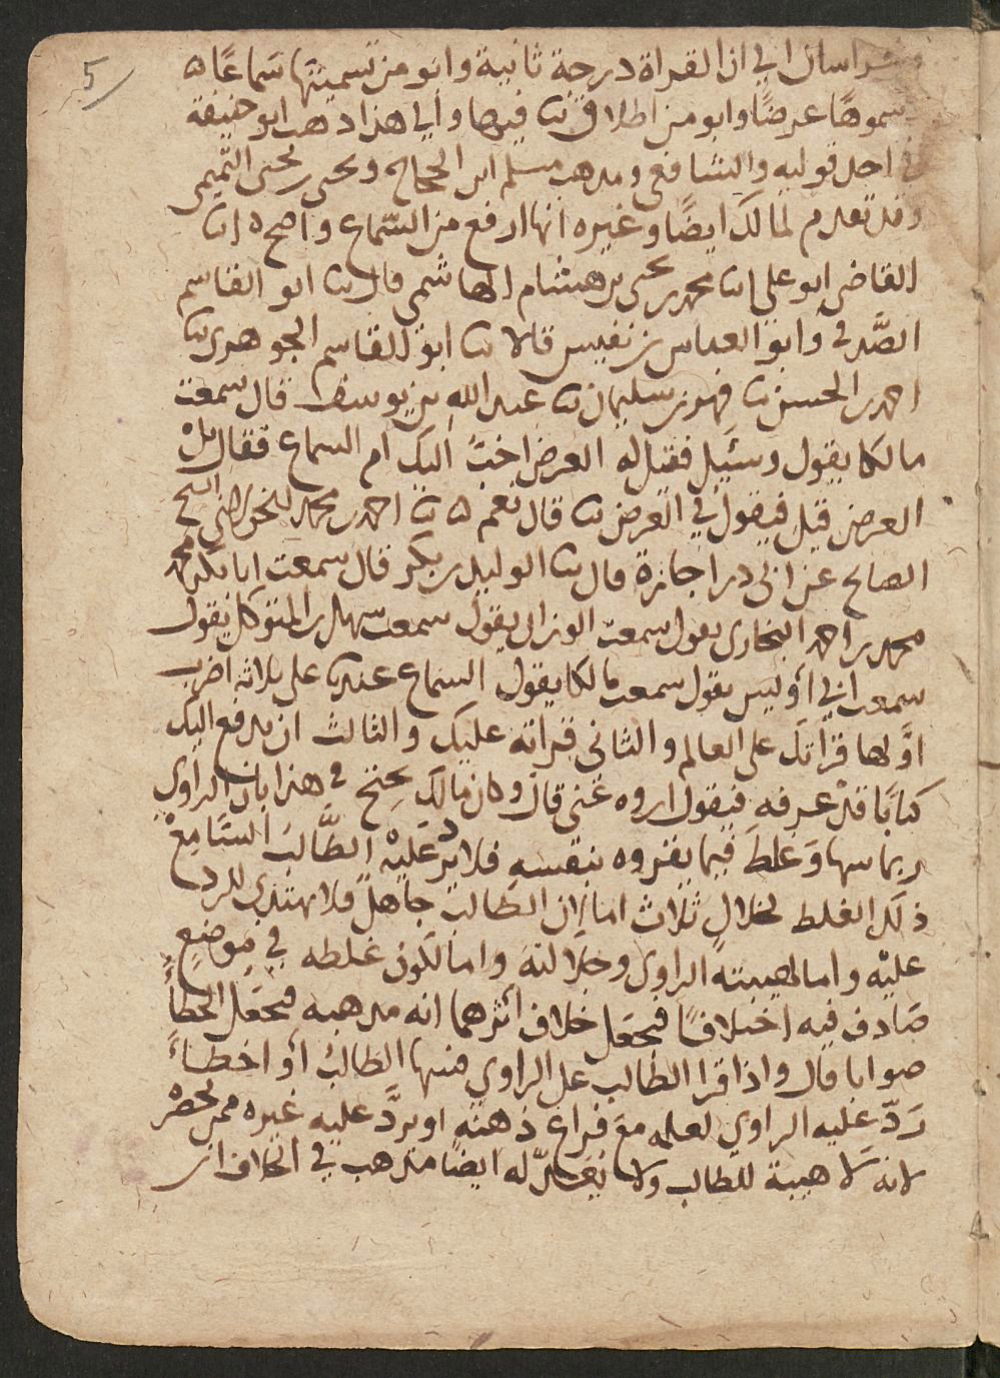 5
خراسان الى ان القراة درجة ثانية وابو من تسميتها سَماعًا ه
سموها عرضًا وابو من اطلاق ثنا فيها والى هذا ذهب ابو حنيفة
في احد قوليه والشافعي ومذهب مسلم ابن الحجاج ويحيى بن يحيى التميمي
وقد تقدم لمالك ايضًا وغيره انها ارفع من السّماع واصح ه انا
القاضي ابو علي انا محمد بن يحيى بن هشام الهاشمي قال ثنا ابو القاسم
الصَّدفي وابو العباس بن نفيس قالا ثنا ابو القاسم الجوهري ثنا
احمد بن الحسن ثنا فهد بن سليمان ثنا عبد الله بن يوسف قال سمعت
مالكا يقول وسُئِل فقيل له العرض احبّ اليك ام السماع فقال بلْ
العرض قيل فيقول في العرض ثنا قال نعم ه ثنا احمد بن محمد الخولاني الشيخ
الصالح عن ابي ذر اجازة قال ثنا الوليد بن بكر قال سمعت ابا بكر محمد
محمد بن احمد البخاري يقول سمعت الوزان يقول سمعت سهل بن المتوكل يقول
سمعت ابن ابي أويس يقول سمعت مالكا يقول السماع عندنا على ثلاثة اضرب
اوَّلها قرأتك على العالم والثاني قراته عليك والثالث ان يدفع اليك
كتابًا قدْ عرفه فيقول اروه عَني قال وكان مالك يحتج في هذا بان الراوي
ربما سها وَغلطَ فيما يقروه بنفسهِ فلا يردّ عَليْهِ الطَّالبَ السَّامِعْ
ذلك الغلط لخلالٍ ثلاث اما لان الطالب جاهل فلا يهتدي للرد
عليْه واما لهيبته الراوي وجلالته واما لكون غلطه في موضعٍ
صَادف فيه اختلافًا فيجعل خلاف اثرهما انه مذهبه فيحعَل الخطأ
صوابا قال واذا قرا الطالب على الراوي فسها الطالبُ أو اخطأ
رَدّ عليه الراوي لعلمه معَ فراغ ذهنه او يردَّ عليه غيره ممن يحضر
لانه لا هيبة للطالب ولا يعدّ له ايضًا مذهب في الخلاف ان